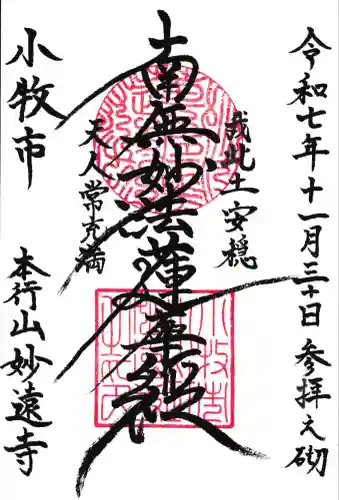 令和七年十一月三十日 参拝之砌
我此土安穏
南無妙法蓮華経
天人常充満
小牧市
本行山妙遠寺